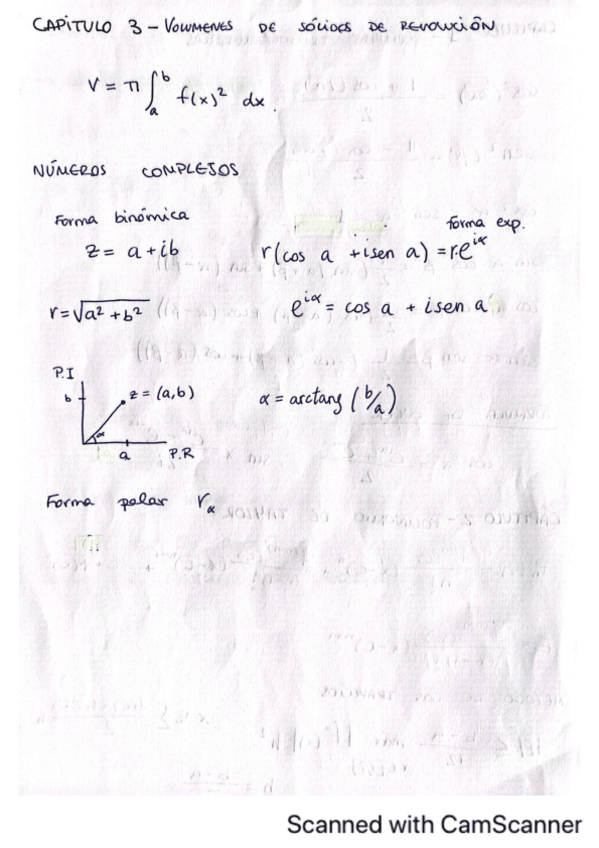 CAPÍTULO 3 - VOLUMENES DE SÓLIDOS DE REVOLUCIÓN
V = π ∫_a^b f(x)² dx.
NÚMEROS COMPLEJOS
Forma binómica
forma exp.
z = a + ib
r(cos a + i sen a) = r·e^{iα}
r = √(a² + b²)
e^{iα} = cos a + i sen a
P.I
b
z = (a,b)
α = arctang (b/a)
α
a
P.R
Forma polar r_α
Scanned with CamScanner